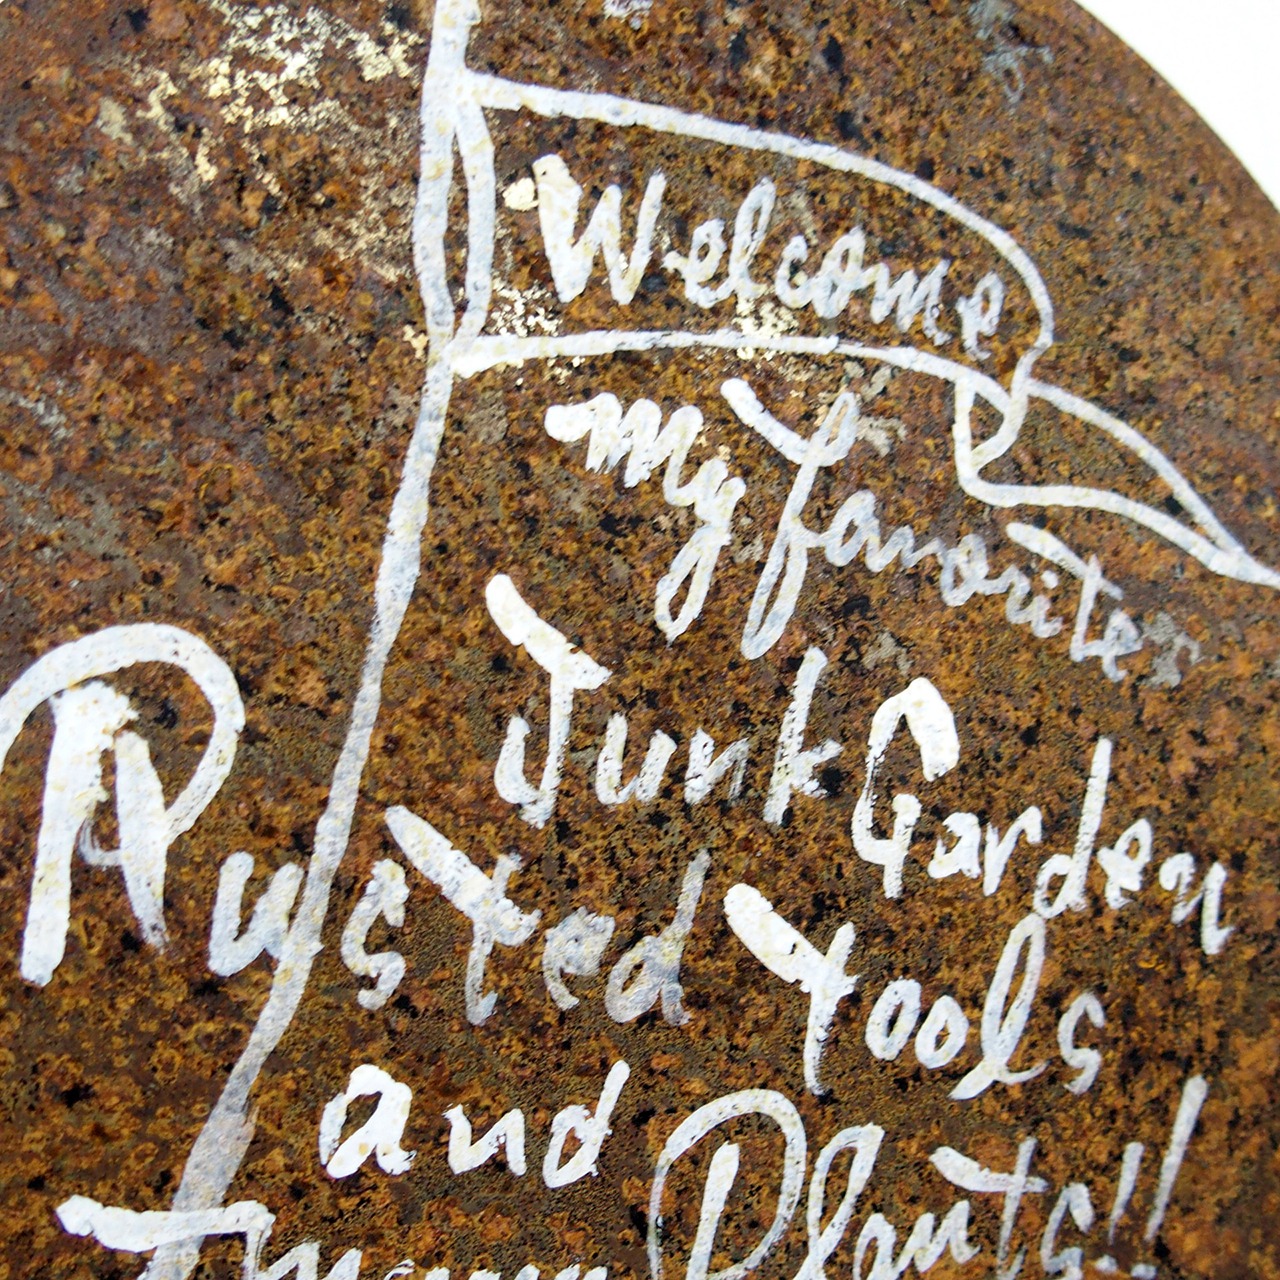 Welcome
my favorites
Junk Garden
Rusted Tools
and Plants!!